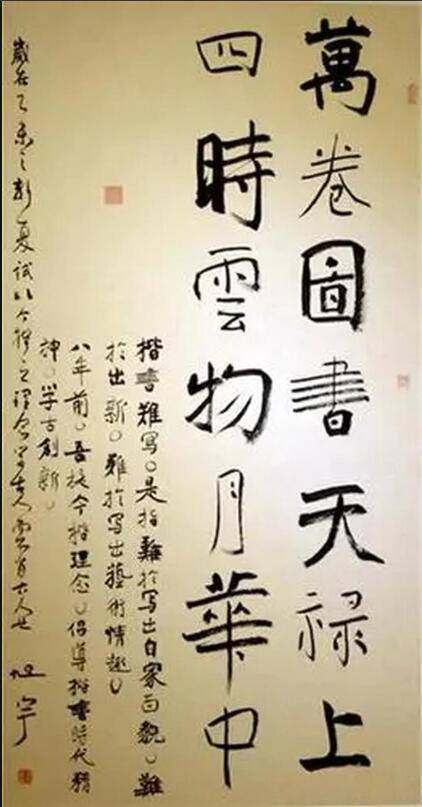 萬卷圖書天禄上
四時雲物月華中
楷書難写。是指難扵写出自家面貌。難
扵出新。難扵写出藝術情趣。
八年前。吾提今楷理念。倡導楷書時代精
神。学古創新。
歲在乙未之新夏試以今楷之理念写古人